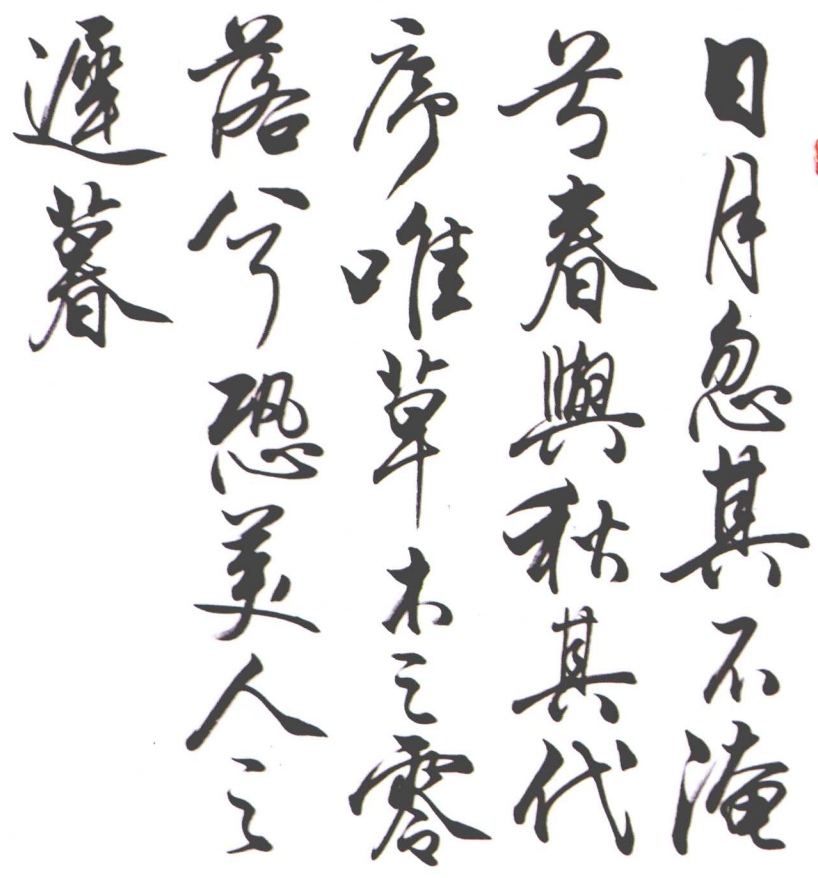 日月忽其不淹
兮春與秋其代
序唯草木之零
落兮恐美人之
遲暮